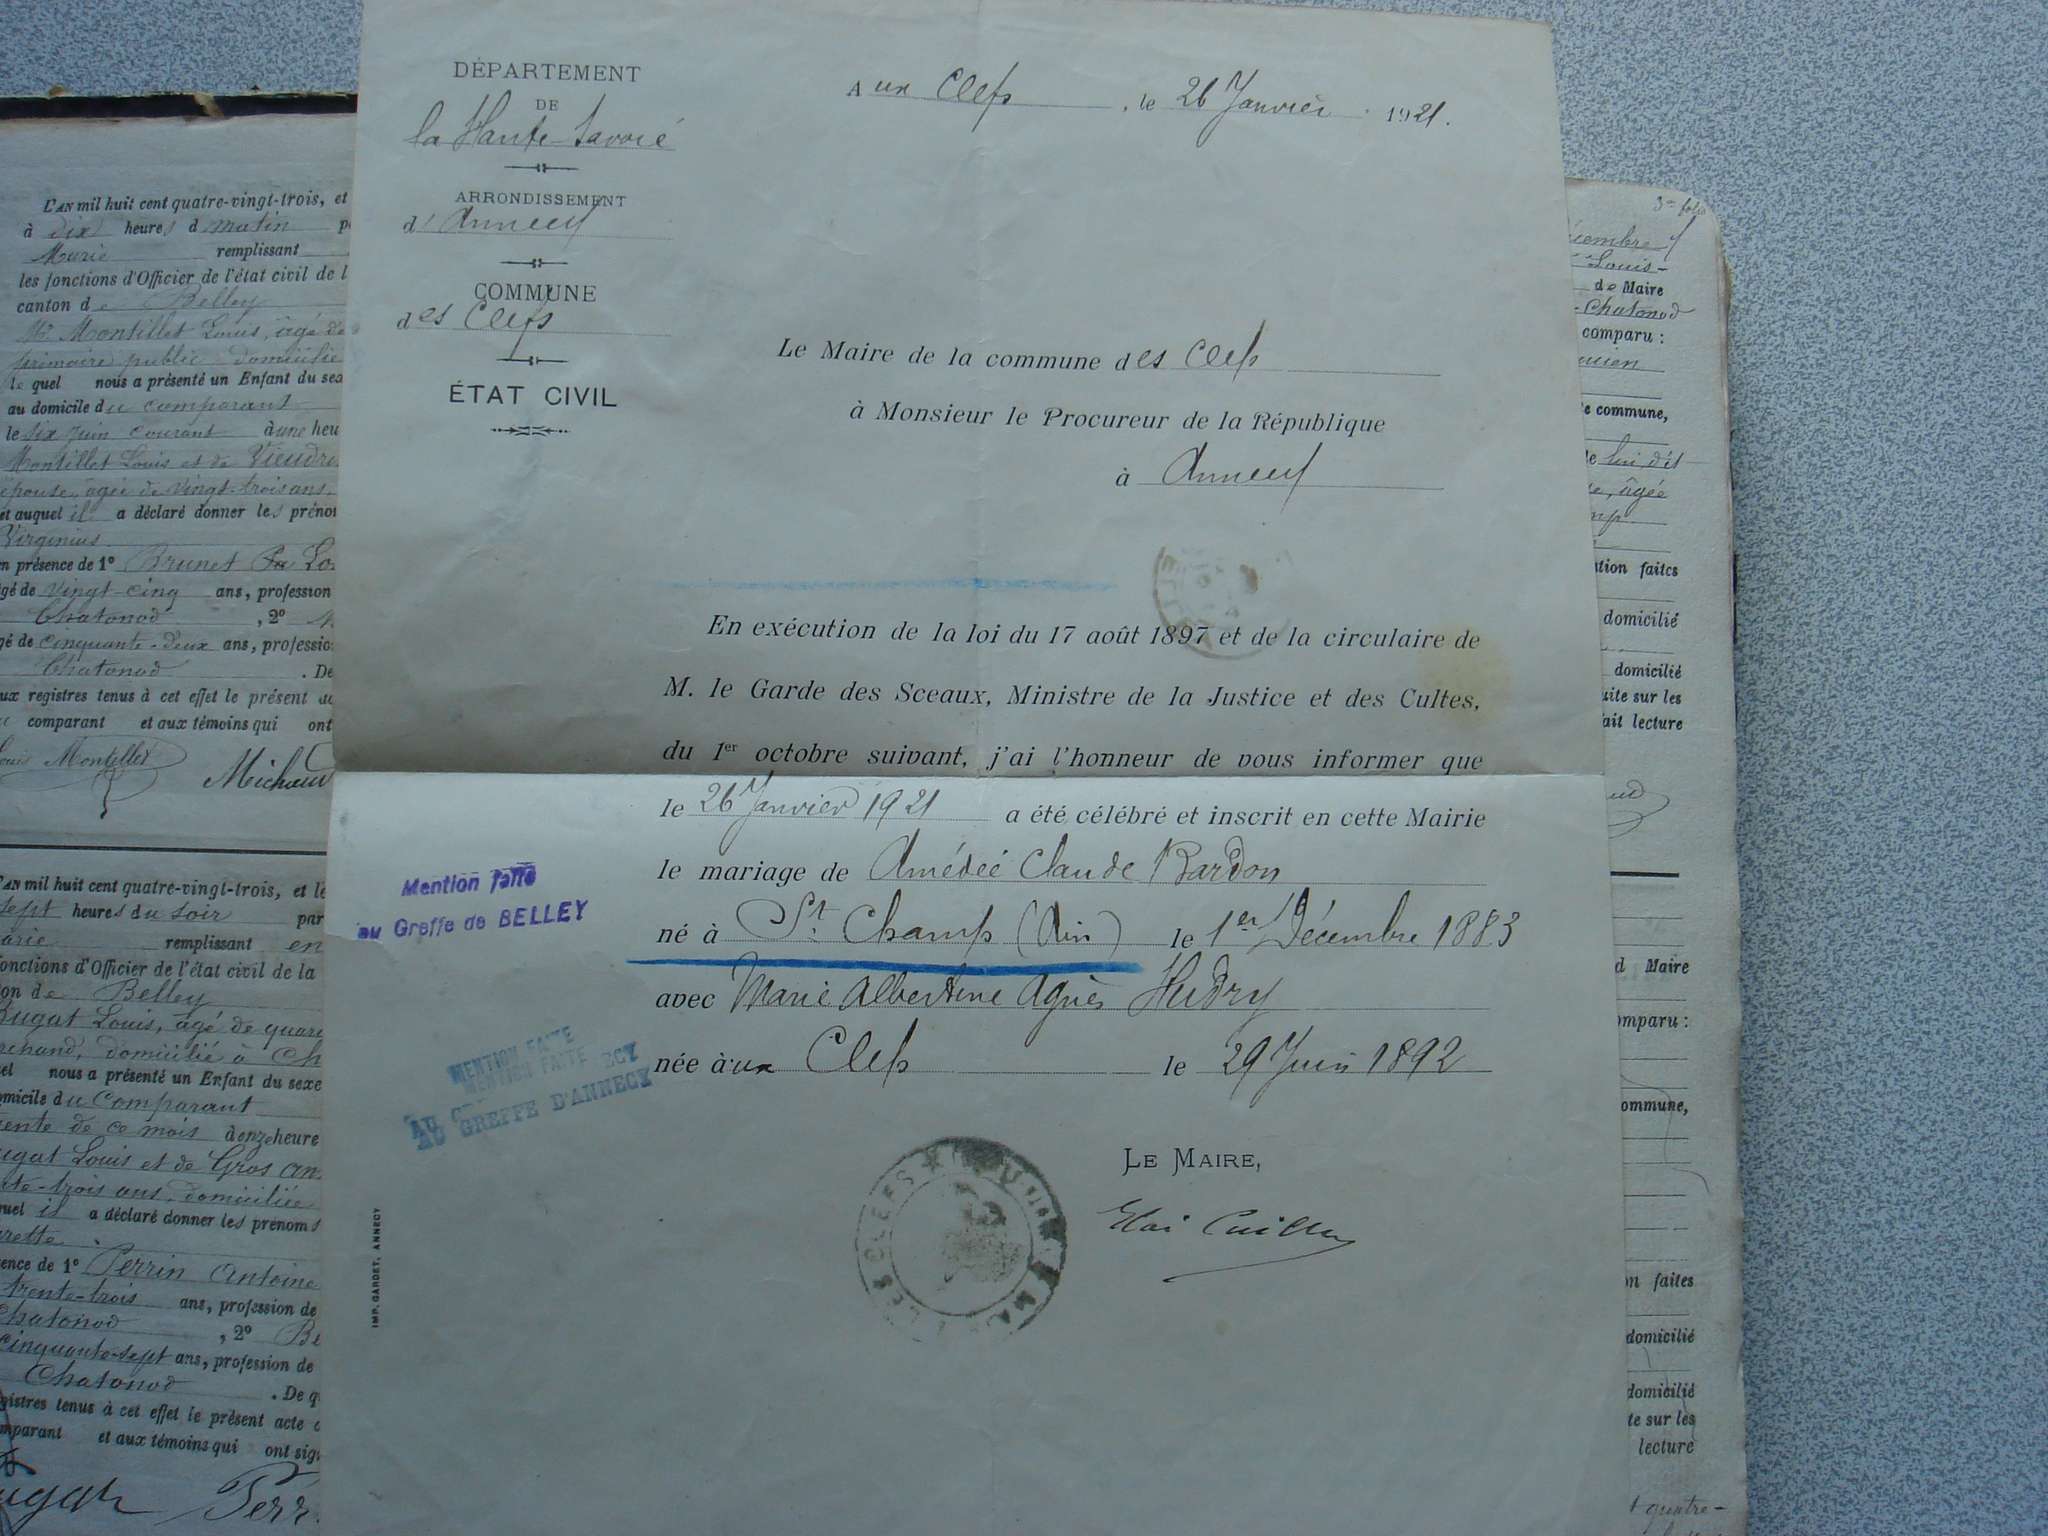 DÉPARTEMENT
DE
la Haute-Savoie
ARRONDISSEMENT
d'Annecy
COMMUNE
des Clefs
ÉTAT CIVIL
Aux Clefs, le 26 Janvier 1921.
Le Maire de la commune des Clefs
à Monsieur le Procureur de la République
à Annecy
En exécution de la loi du 17 août 1897 et de la circulaire de
M. le Garde des Sceaux, Ministre de la Justice et des Cultes,
du 1er octobre suivant, j'ai l'honneur de vous informer que
le 26 Janvier 1921 a été célébré et inscrit en cette Mairie
le mariage de Amédée Claude Bardon
né à St. Champ (Ain) le 1er Décembre 1883
avec Marie Albertine Agnès Hudry
née à ux Clefs le 29 Juin 1892
LE MAIRE,
Mention faite
au Greffe de BELLEY
MENTION FAITE
MENTION FAITE
AU GREFFE D'ANNECY
LES CLEFS
IMP. GARDET, ANNECY
L'AN mil huit cent quatre-vingt-trois, et
à dix heures d matin
remplissant
les fonctions d'Officier de l'état civil de l
canton de Belley
Mr Montillet Louis, âgé de
primaire public domicilié
le quel nous a présenté un Enfant du sex
au domicile du comparant
le six Juin courant à une heu
Montillet Louis et de
épouse, âgée de vingt-trois ans,
et auquel il a déclaré donner les prénom
Virginius
en présence de 1° Brunet
gé de vingt-cinq ans, profession
Chatonod , 2°
gé de cinquante-deux ans, professio
Chatonod . De
ux registres tenus à cet effet le présent ac
comparant et aux témoins qui ont
Louis Montillet Michaud
L'AN mil huit cent quatre-vingt-trois, et le
sept heures du soir par
remplissant en
fonctions d'Officier de l'état civil de la
on de Belley
Bugat Louis, âgé de quara
domicilié à Ch
el nous a présenté un Enfant du sexe
omicile du Comparant
rente de ce mois à onze heure
ugat Louis et de Gros
te-trois ans, domiciliée
quel il a déclaré donner les prénoms
ence de 1° Perrin Antoine
trente-trois ans, profession de
Chatonod , 2° Be
cinquante-sept ans, profession de
Chatonod . De q
gistres tenus à cet effet le présent acte
mparant et aux témoins qui ont sig
ugat Perr
3e folio
cembre
Louis-
de Maire
-Chatonod
comparu :
e commune,
âgée
tion faites
domicilié
domicilié
uite sur les
ait lecture
d Maire
omparu :
ommune,
on faites
domicilié
domicilié
te sur les
lecture
t quatre-